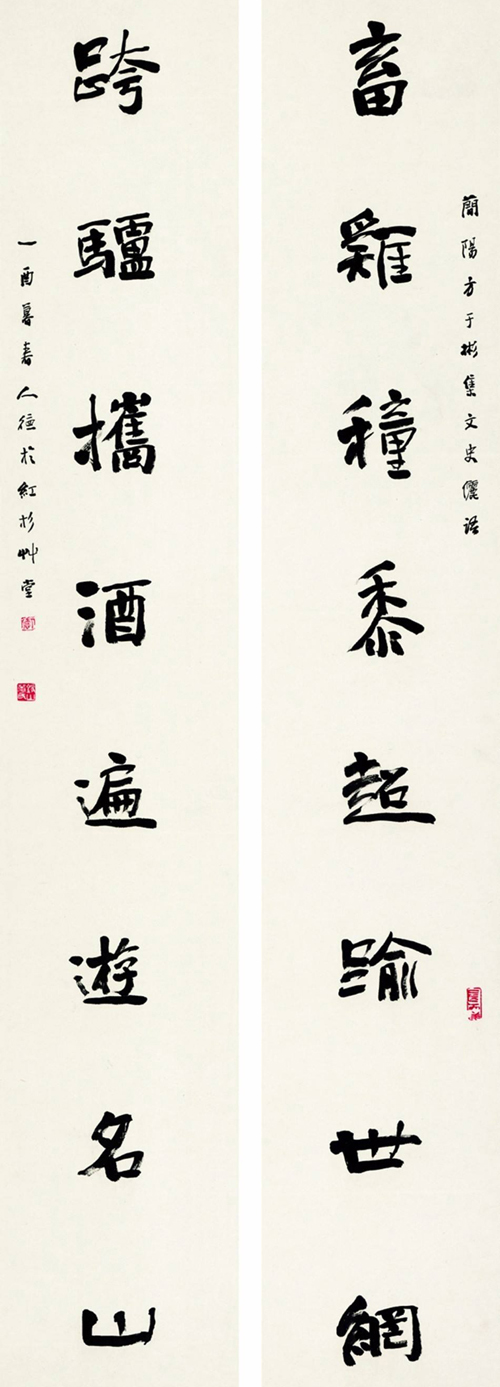 畜雞穜黍超踰世網
簡陽方于彬集文史儷語
跨驢攜酒遍遊名山
乙酉暮春人德於紅杉艸堂